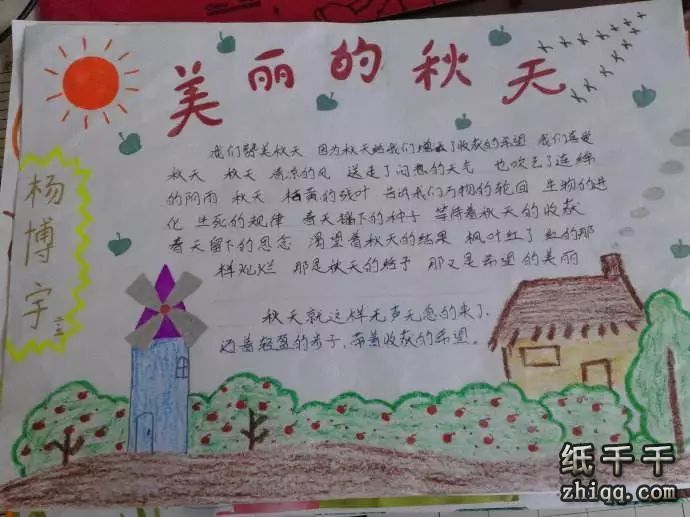 美丽的秋天
杨博宇
二.三
我们赞美秋天 因为秋天给我们增添了收获的希望 我们喜爱
秋天 秋天 凉凉的风 送走了闷热的天气 也吹走了连绵
的阴雨 秋天 枯黄的残叶 告诉我们万物的轮回 生物的进
化 生死的规律 春天播下的种子 等待着秋天的收获
春天留下的思念 渴望着秋天的结果 枫叶红了 红的那
样灿烂 那是秋天的给予 那又是希望的美丽
秋天就这样无声无息的来了.
迈着轻盈的步子、带着收获的希望。
纸千千
zhiqq.com